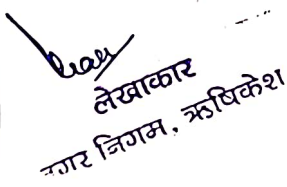 लेखाकार
नगर निगम, ऋषिकेश